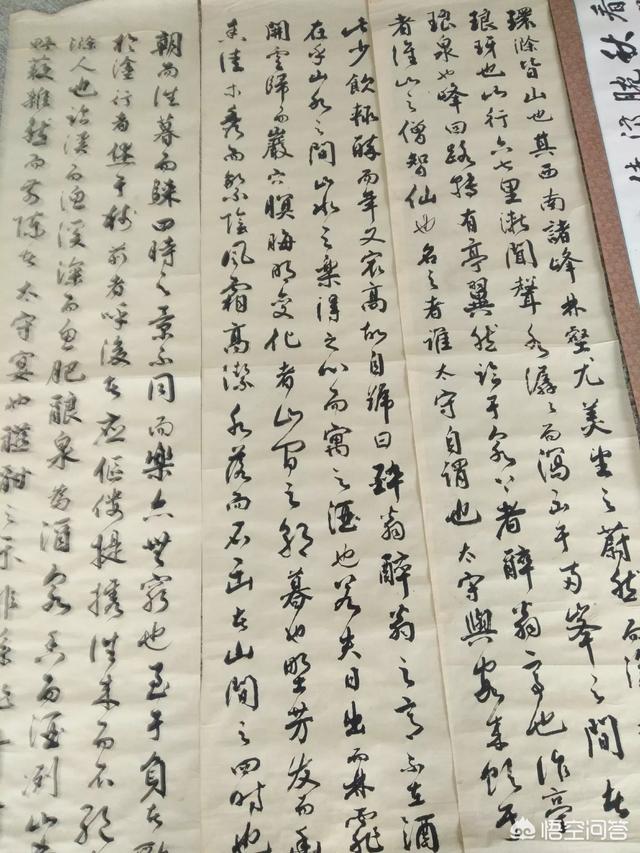 環滁皆山也其西南諸峰林壑尤美望之蔚然而深
琅玡也山行六七里漸聞聲水潺々而瀉出于兩峰之間者
釀泉也峰回路轉有亭翼然臨于泉上者醉翁亭也作亭
者誰山之僧智仙也名之者誰太守自謂也太守與客來飲于
此少飲輒醉而年又最高故自號曰醉翁醉翁之意不在酒
在乎山水之間山水之樂得之心而寓之酒也若夫日出而林霏
開雲歸而巖穴暝晦明變化者山間之朝暮也野芳發而幽
香佳木秀而繁陰風霜高潔水落而石出者山間之四時也
朝而往暮而歸四時之景不同而樂亦無窮也至于負者歌
於塗行者休于樹前者呼後者應傴僂提攜往來而不絕
滁人也臨溪而漁溪深而魚肥釀泉為酒泉香而酒洌山
野蔌雜然而前陳者太守宴也宴酣之樂非絲
悟空问答